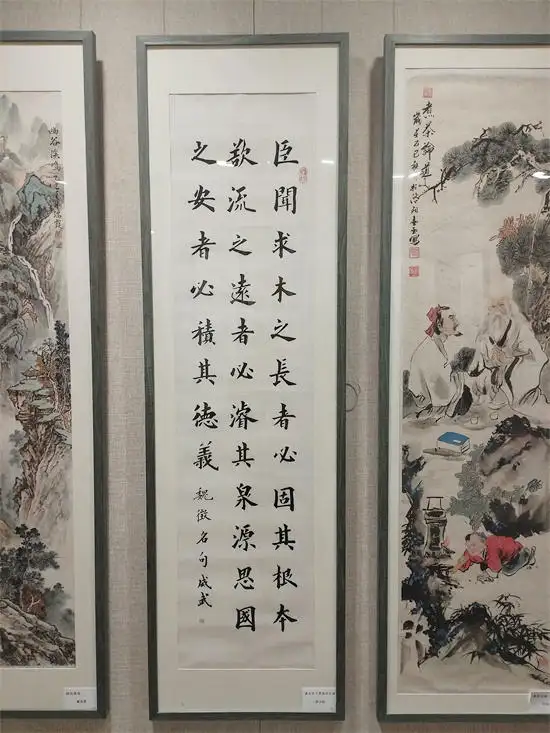 煮茶論道
臣聞求木之長者必固其根本
欲流之遠者必濬其泉源思國
之安者必積其德義
魏徵名句成武
幽谷溪鳴